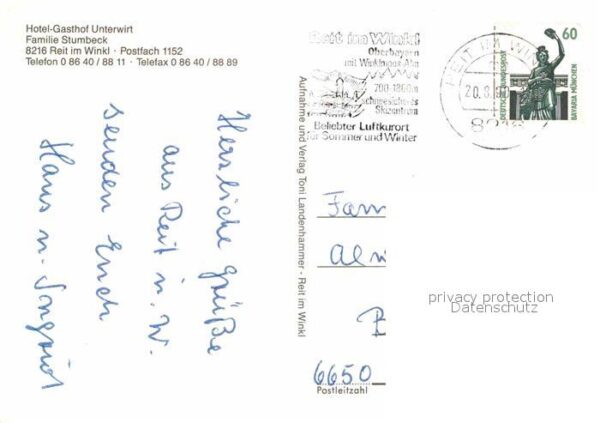 Hotel-Gasthof Unterwirt
Familie Stumbeck
8216 Reit im Winkl · Postfach 1152
Telefon 0 86 40 / 88 11 · Telefax 0 86 40 / 88 89
Herzliche Grüße
aus Reit i. W.
senden Euch
Hans u.
Aufnahme und Verlag Toni Landenhammer - Reit im Winkl
Reit im Winkl
Oberbayern
mit Winklmoos-Alm
700-1860m
schneesicheres
Skizentrum
Beliebter Luftkurort
für Sommer und Winter
REIT IM WINKL
20.8.
8216
60
DEUTSCHE BUNDESPOST
BAVARIA MÜNCHEN
Fam
privacy protection
Datenschutz
6650
Postleitzahl